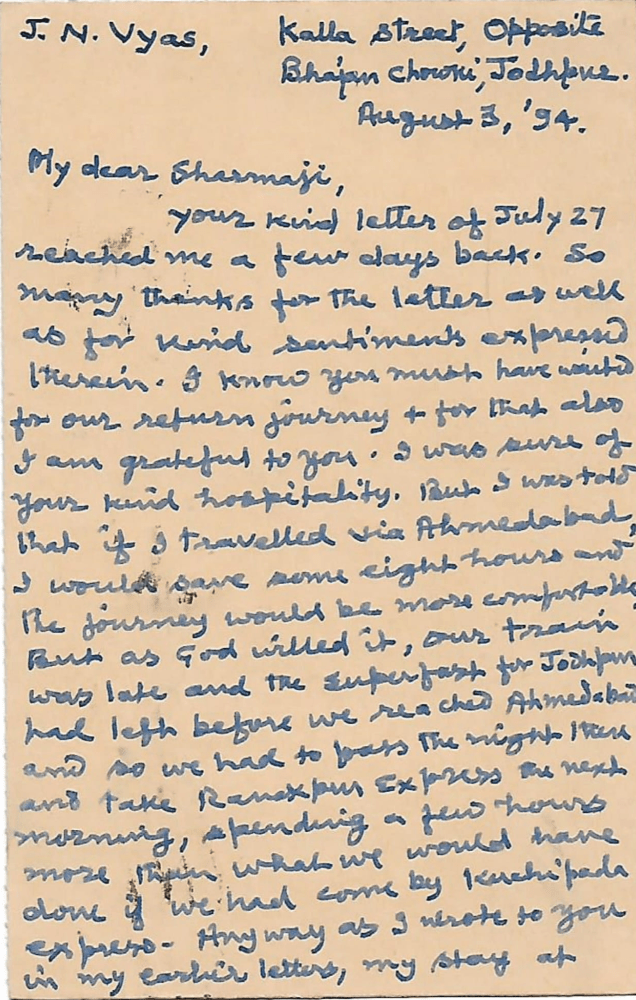 J. N. Vyas, Kalla Street, Opposite
Bhajan Chowki, Jodhpur.
August 3, '94.
My dear Sharmaji,
Your kind letter of July 27
reached me a few days back. So
many thanks for the letter as well
as for kind sentiments expressed
therein. I know you must have waited
for our return journey & for that also
I am grateful to you. I was sure of
your kind hospitality. But I was told
that if I travelled via Ahmedabad,
I would save some eight hours and
the journey would be more comfortable
But as God willed it, our train
was late and the Superfast for Jodhpur
had left before we reached Ahmedabad
and so we had to pass the night there
and take Ranakpur Express the next
morning, spending a few hours
more than what we would have
done if we had come by Kachipada
express. Anyway as I wrote to you
in my earlier letters, my stay at